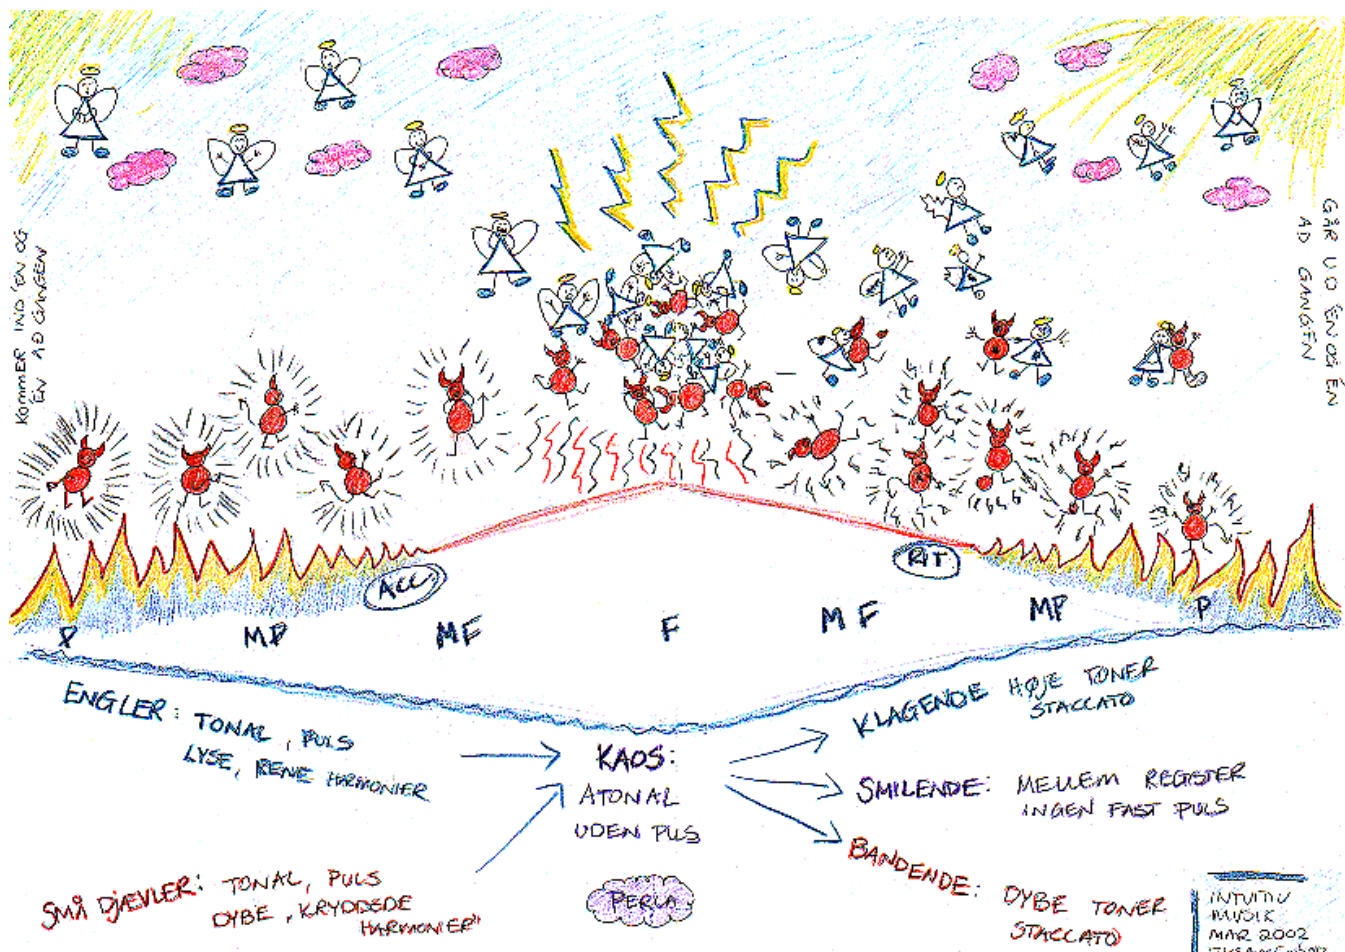 KOMMER IND EN OG
EN AD GANGEN
GÅR UD EN OG ÉN
AD GANGEN
ACC.
RIT
P
MP
MF
F
MF
MP
P
ENGLER: TONAL, PULS
LYSE, RENE HARMONIER
SMÅ DJÆVLER: TONAL, PULS
DYBE, KRYDDEDE
HARMONIER"
KAOS:
ATONAL
UDEN PULS
PERLA
KLAGENDE HØJE TONER
STACCATO
SMILENDE: MELLEM REGISTER
INGEN FAST PULS
BANDENDE: DYBE TONER
STACCATO
INTUITIV
MUSIK
MAR 2002